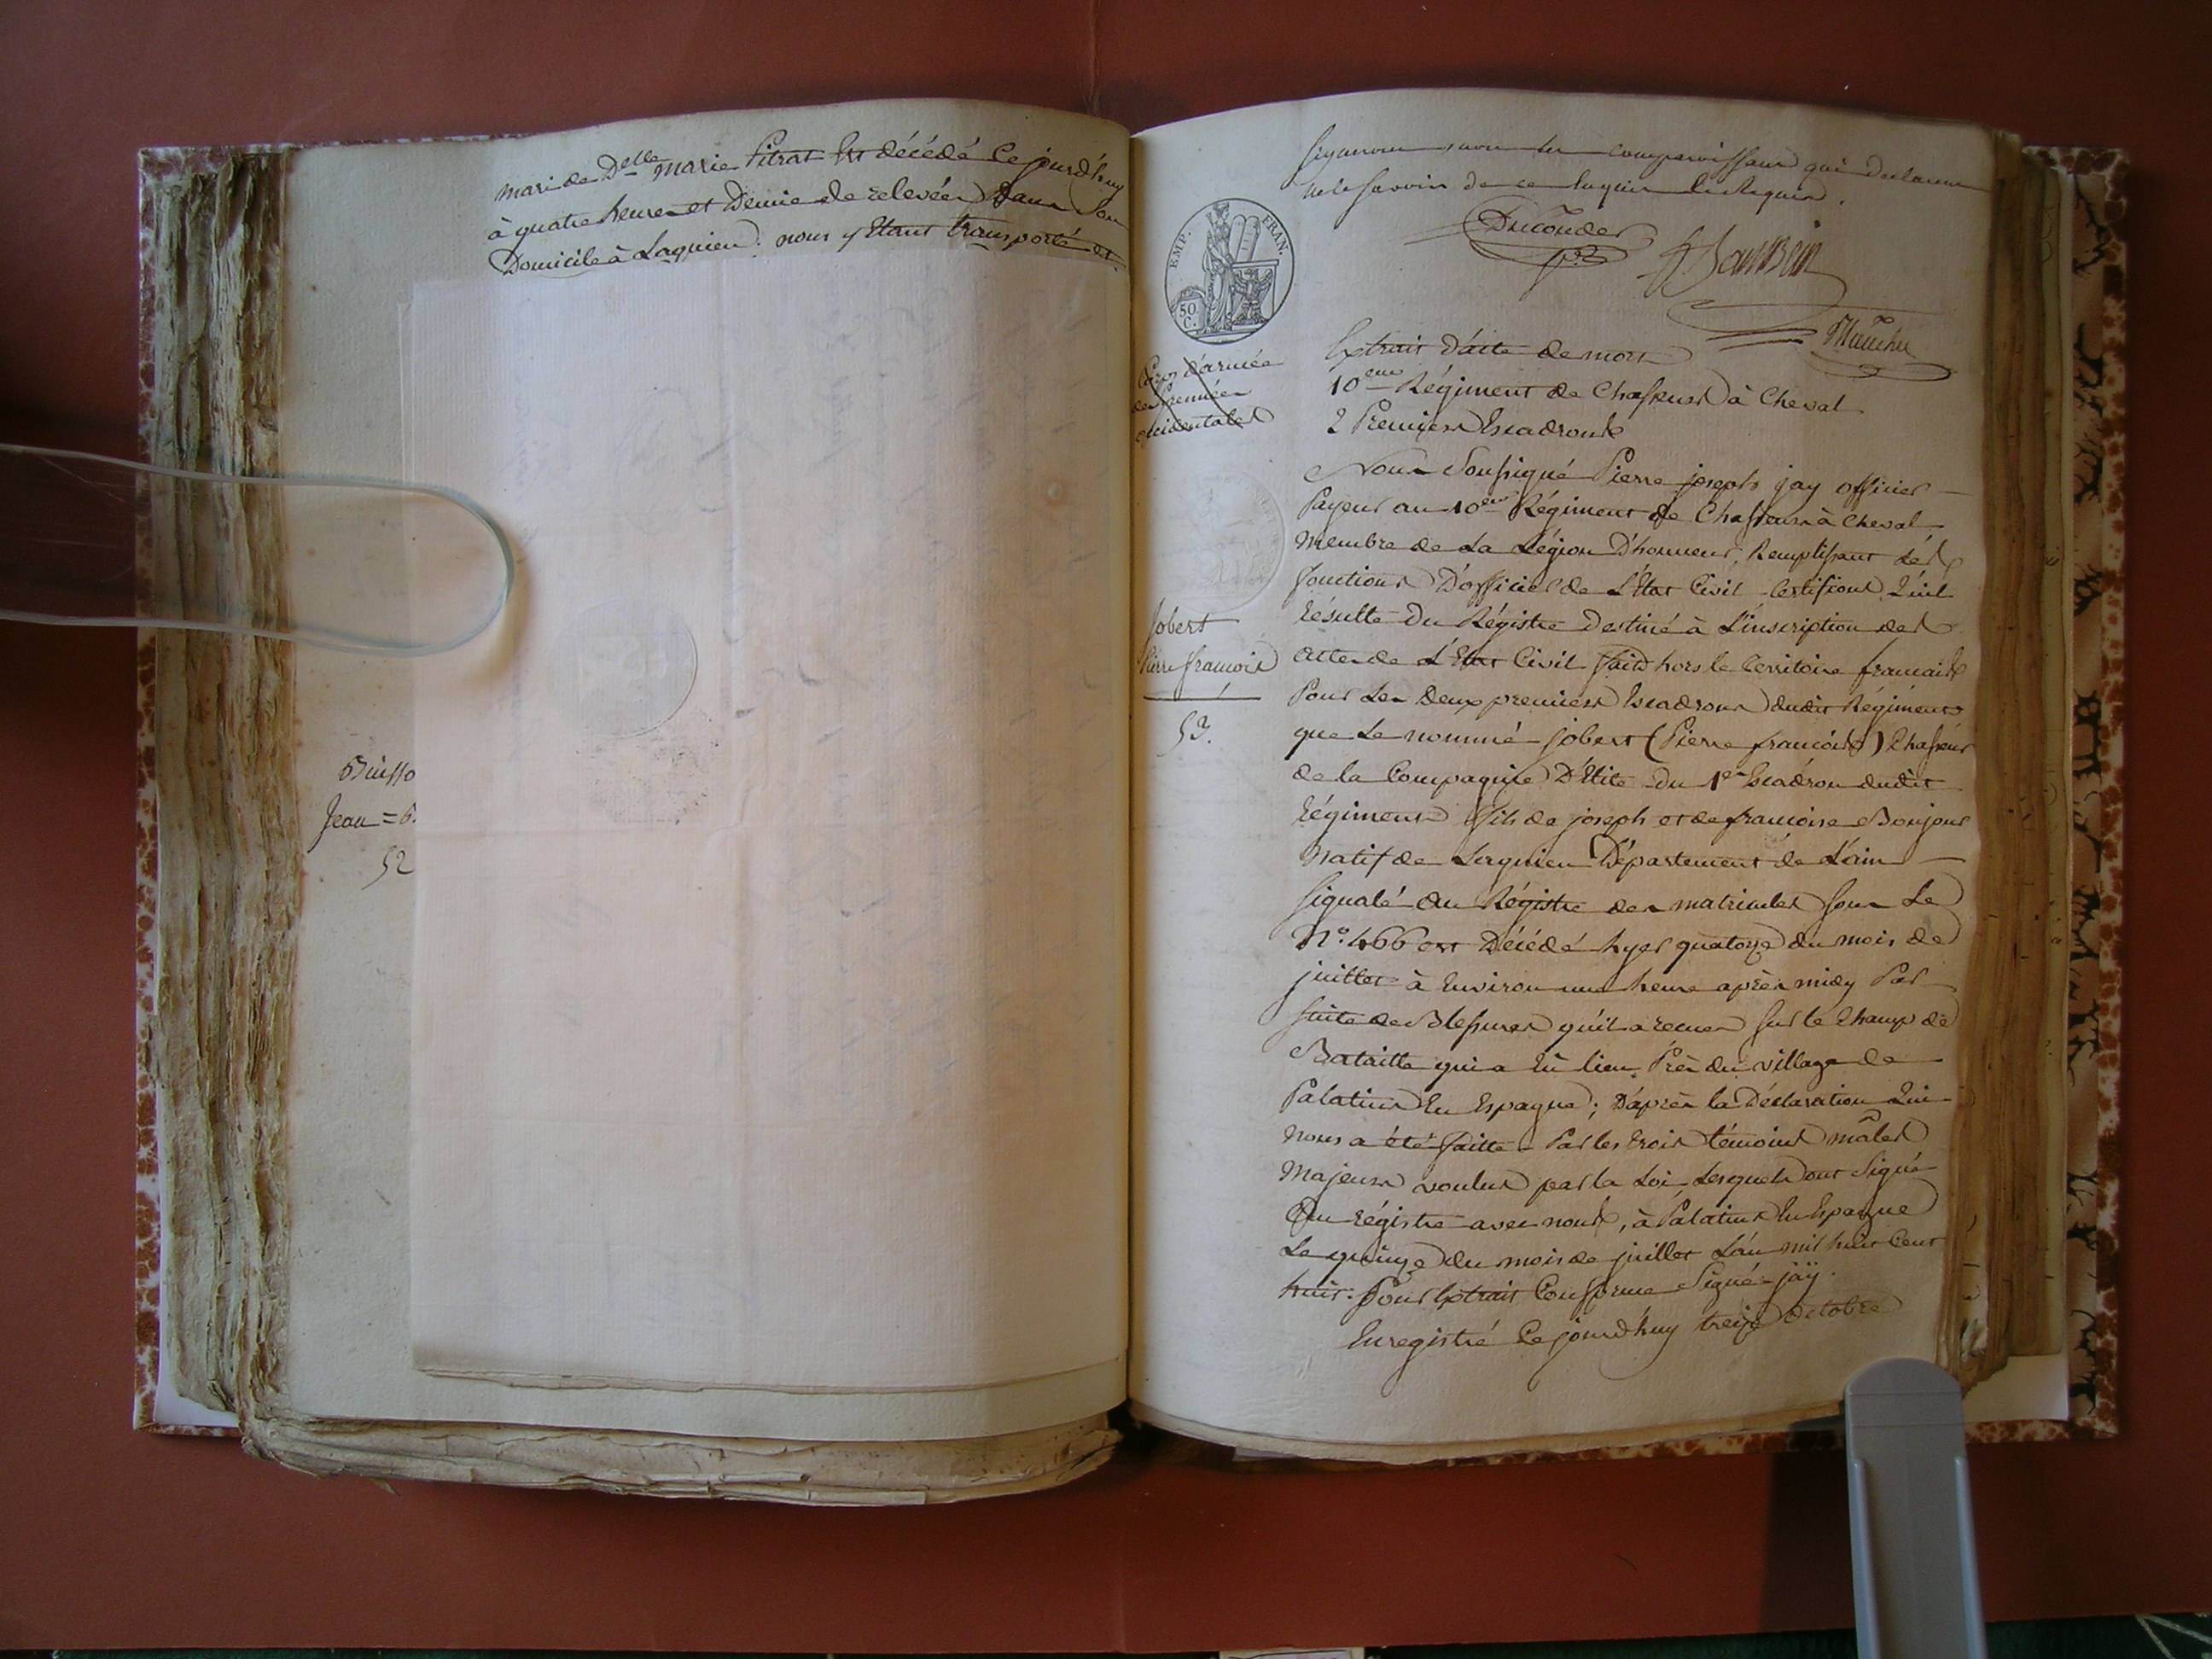 mari de Delle marie Pitrat Est décédé Ce jourd'huy
à quatre heures et Demie de relevée, Dans Son
Domicile à Lagnieu. nous y Etant transporté et
Buisso
Jean = B.
52
qui Declarent
EMP. FRAN.
50 C.
Corps d'armée
des Pirennées
occidentales
Jobert
Pierre françois
53.
Extrait D'acte de mort
10eme Régiment de Chasseurs à Cheval
2 Premiers Escadrons
Nous Soussigné Pierre joseph jay officier
Payeur au 10eme Régiment de Chasseurs à Cheval
Membre de La Légion D'honneur, Remplissant les
fonctions D'officier de L'Etat Civil Certifions Qu'il
Résulte Du Régistre Destiné à L'inscription des
actes de L'Etat Civil faits hors le Territoire francais
Pour Les Deux premiers Escadrons dudit Régiment
que Le nommé jobert (Pierre francois) Chasseur
de la Compagnie D'Elite Du 1er Escadron dudit
Régiment fils de joseph et de francoise Bonjour
Natif de Lagnieu Département de L'ain
Signalé au Régistre des matricules sous Le
N.o 466 est Décédé hyer quatorze du mois de
juillet à Environ une heure après midy Par
Suite de Blessures qu'il a recues sur le Champ de
Bataille qui a Eû lieu Près du village de
Palatius En Espagne; D'après la Déclaration Qui
nous a été faitte Par les trois témoins mâles
Majeurs voulus par la Loi Lesquels ont Signé
Au régistre avec nous, à Palatius En Espagne
Le quinze du mois de juillet L'an mil huit Cent
huit. Pour Extrait Conforme Signé jaÿ.
Enregistré Ce jourd'huy treize octobre